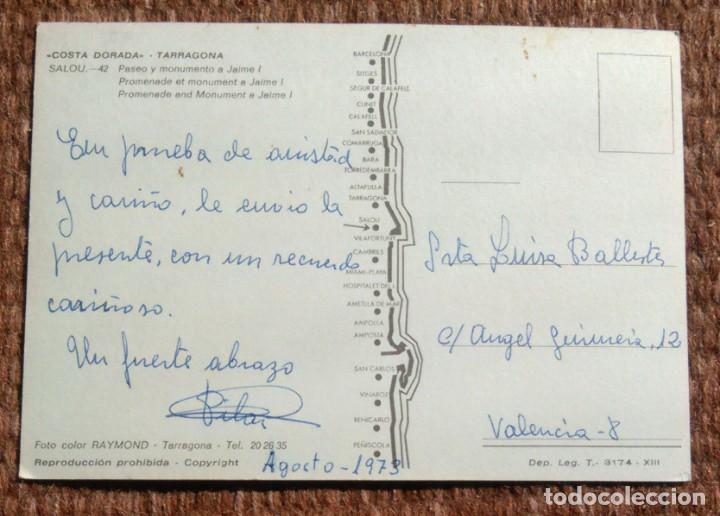 «COSTA DORADA» - TARRAGONA
SALOU.—42 Paseo y monumento a Jaime I
Promenade et monument a Jaime I
Promenade and Monument a Jaime I
En prueba de amistad
y cariño, le envio la
presente, con un recuerdo
cariñoso.
Un fuerte abrazo
Pilar
Agosto - 1973
Foto color RAYMOND - Tarragona - Tel. 20 26 35
Reproducción prohibida - Copyright
BARCELONA
SITGES
SEGUR DE CALAFELL
CUNIT
CALAFELL
SAN SALVADOR
COMARRUGA
BARA
TORREDEMBARRA
ALTAFULLA
TARRAGONA
SALOU
VILAFORTUNY
CAMBRILS
MIAMI-PLAYA
HOSPITALET DEL I.
AMETLLA DE MAR
AMPOLLA
AMPOSTA
SAN CARLOS
VINAROZ
BENICARLO
PEÑISCOLA
Srta Luisa Ballester
c/ Angel Guimerá, 12
Valencia-8
Dep. Leg. T.- 3174 - XIII
todocoleccion
todocoleccion.net